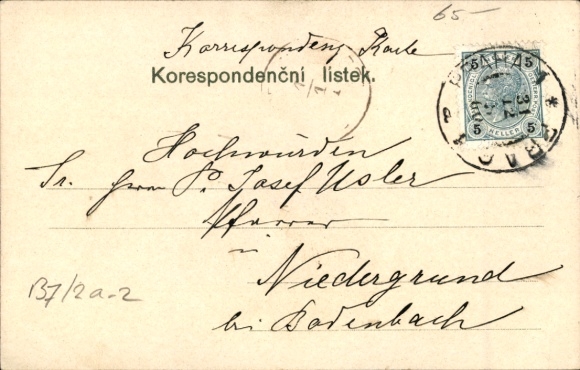 65-
Korrespondenz Karte
Korespondenční lístek.
5 5
5 HELLER 5
PRAHA 1
PRAG 1
31 12
Hochwürden
Sr. Herrn P. Josef Usler
Pfarrer
in
Niedergrund
bei Bodenbach
B7/2a-2